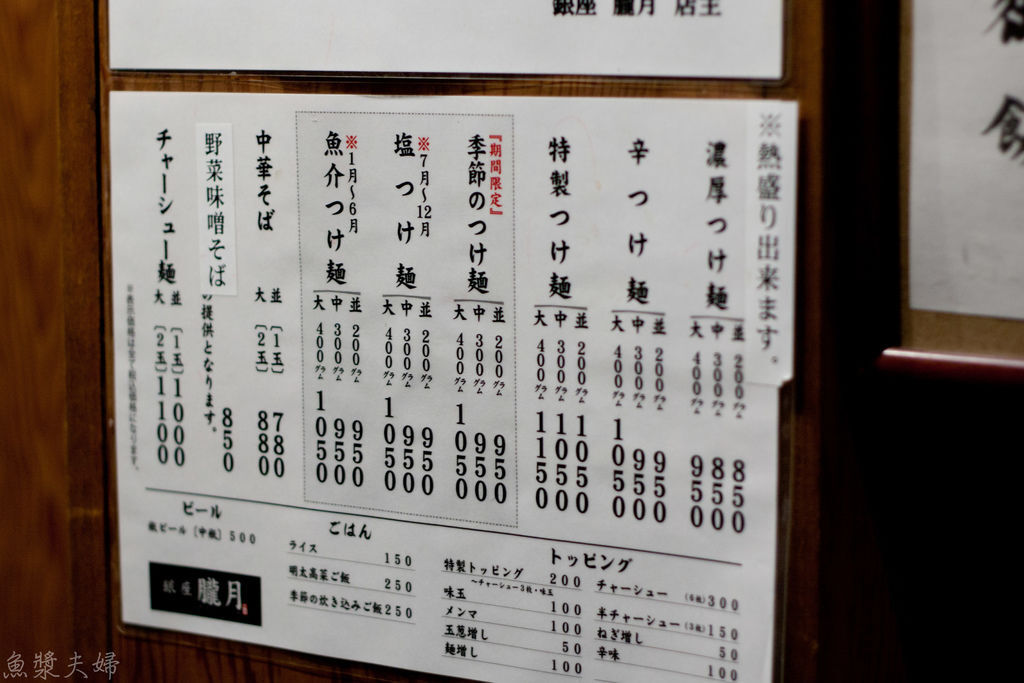 銀座 朧月 店主
※熱盛り出来ます。
濃厚つけ麺
並 200グラム 850
中 300グラム 850
大 400グラム 950
辛つけ麺
並 200グラム 950
中 300グラム 950
大 400グラム 1050
特製つけ麺
並 200グラム 1050
中 300グラム 1050
大 400グラム 1150
『期間限定』
季節のつけ麺
並 200グラム 950
中 300グラム 950
大 400グラム 1050
※7月〜12月
塩つけ麺
並 200グラム 950
中 300グラム 950
大 400グラム 1050
※1月〜6月
魚介つけ麺
並 200グラム 950
中 300グラム 950
大 400グラム 1050
中華そば
並 〔1玉〕 780
大 〔2玉〕 880
野菜味噌そば 850
の提供となります。
チャーシュー麺
並 〔1玉〕 1000
大 〔2玉〕 1100
※表示価格は全て税込価格になります。
ビール
瓶ビール〔中瓶〕500
ごはん
ライス 150
明太高菜ご飯 250
季節の炊き込みご飯 250
トッピング
特製トッピング 200
〜チャーシュー3枚・味玉
味玉 100
メンマ 100
玉葱増し 50
麺増し 100
チャーシュー (6枚) 300
半チャーシュー (3枚) 150
ねぎ増し 50
辛味 100
銀座 朧月
魚漿夫婦